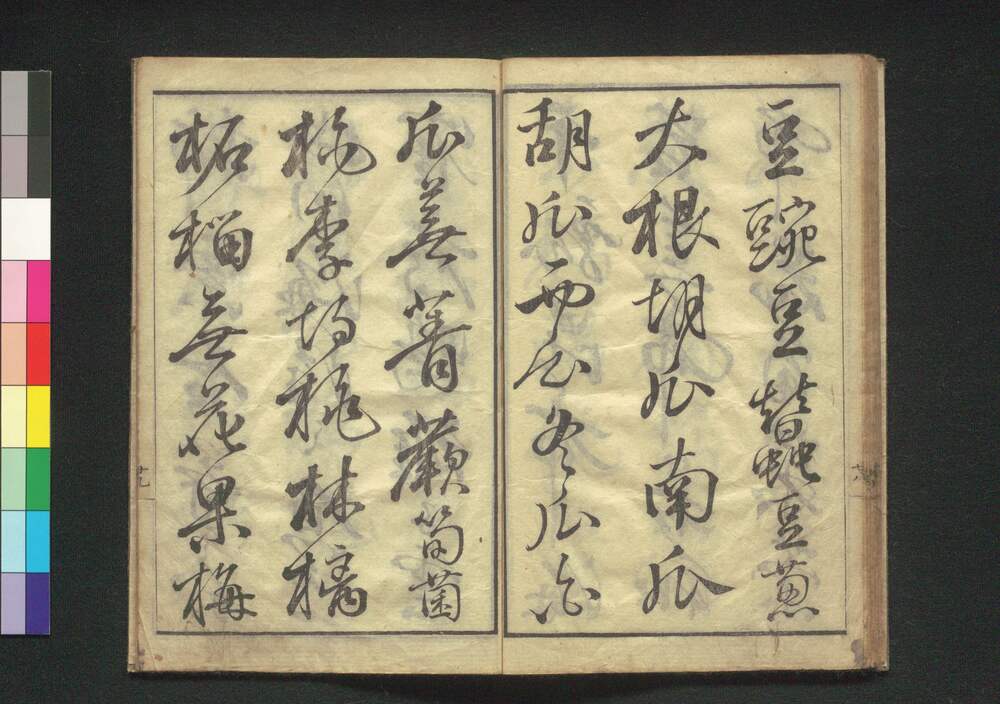 豆豌豆蠶豆葱
大根胡瓜南瓜
胡瓜西瓜冬瓜
瓜蕪菁蕨筍菌
李胡桃林檎
柘榴無花果梅